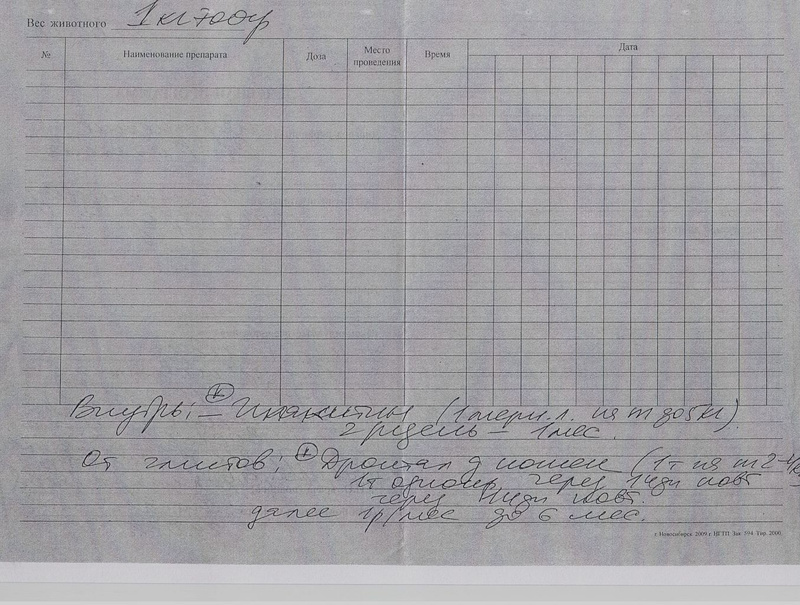 Вес животного 1 кг 700 гр
№ Наименование препарата Доза Место проведения Время Дата
Внутрь: – Ипакитин (1 мерн. л. на m до 5 кг)
2 р/день – 1 мес.
От глистов: Дронтал д кошек (1 т на m
1т однокр. через 14 дн повт
через 14 дн повт.
далее 1р/мес до 6 мес.
г. Новосибирск 2009 г. НГТП Зак. 594 Тир. 2000.